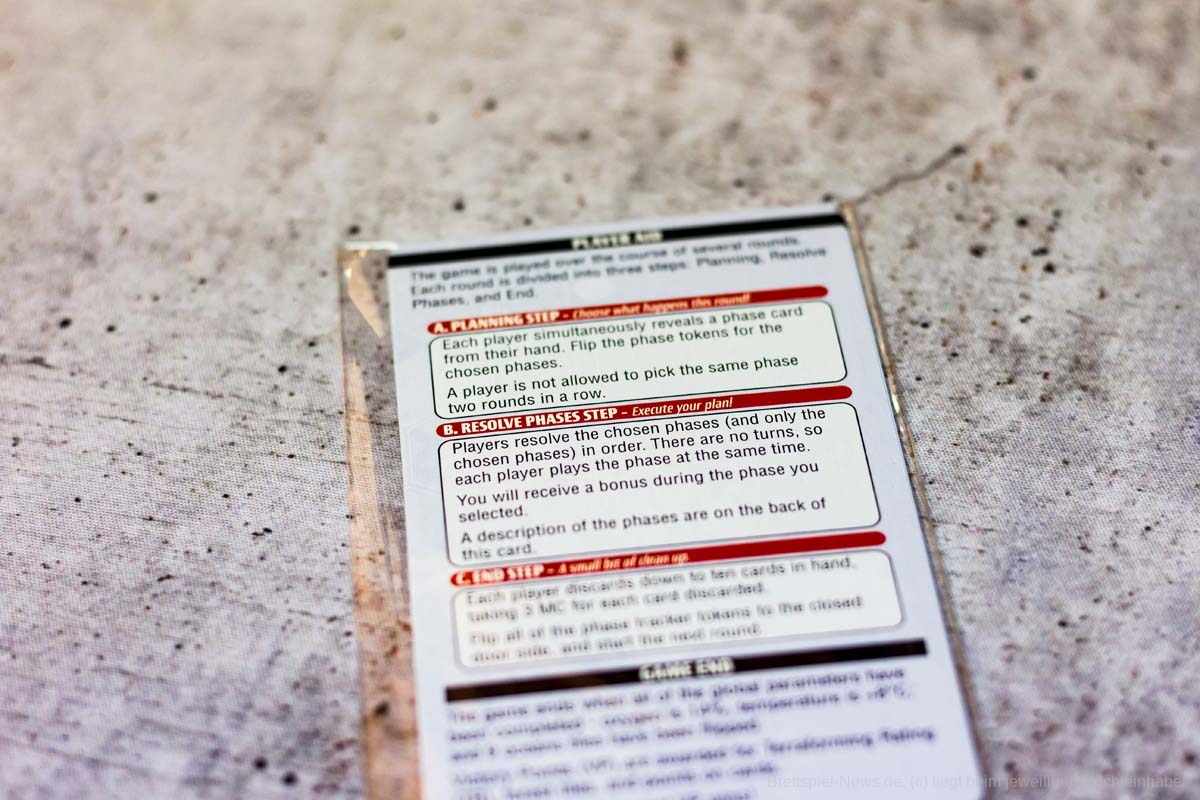 PLAYER AID
The game is played over the course of several rounds.
Each round is divided into three steps: Planning, Resolve
Phases, and End.
A. PLANNING STEP – Choose what happens this round!
Each player simultaneously reveals a phase card
from their hand. Flip the phase tokens for the
chosen phases.
A player is not allowed to pick the same phase
two rounds in a row.
B. RESOLVE PHASES STEP – Execute your plan!
Players resolve the chosen phases (and only the
chosen phases) in order. There are no turns, so
each player plays the phase at the same time.
You will receive a bonus during the phase you
selected.
A description of the phases are on the back of
this card.
C. END STEP – A small bit of clean up.
Each player discards down to ten cards in hand,
taking 3 MC for each card discarded.
Flip all of the phase tracker tokens to the closed
door side, and start the next round.
GAME END
The game ends when all of the global parameters have
been completed - oxygen is 14%, temperature is +8°C,
and 9 oceans tiles have been flipped.
Victory Points (VP) are awarded for Terraforming Rating
Brettspiel-News.de, (c) liegt beim jeweiligen Rechteinhaber